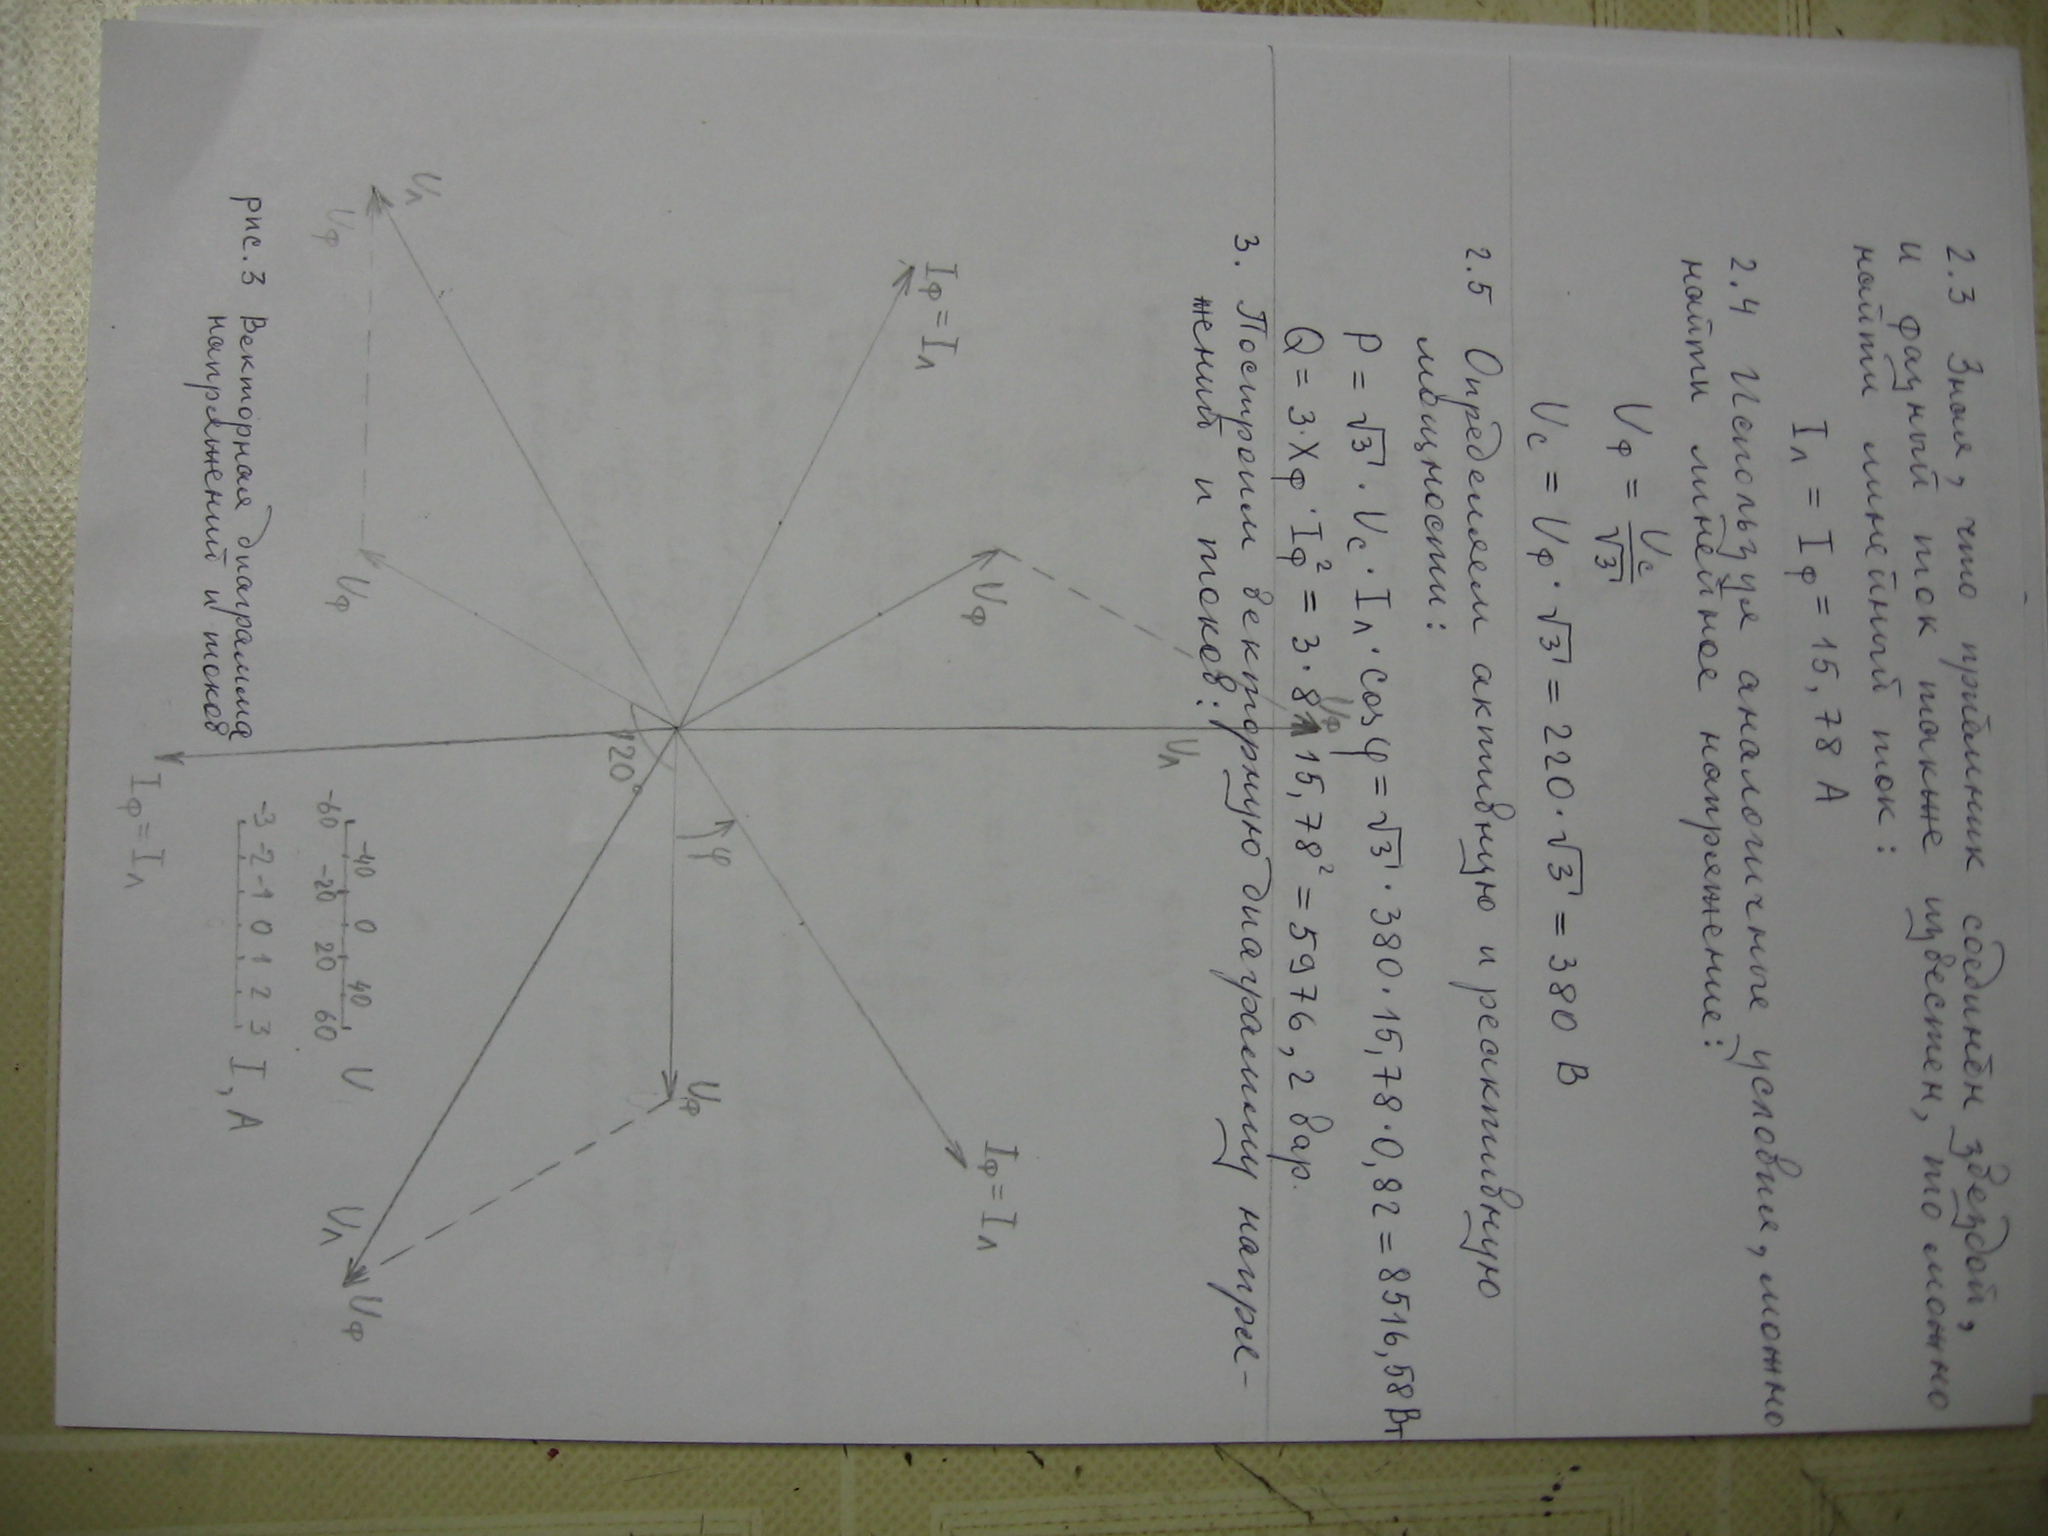 2.3 Зная, что приёмник соединён звездой,
и фазный ток также известен, то можно
найти линейный ток:
Iл = Iф = 15,78 А
2.4 Используя аналогичные условия, можно
найти линейное напряжение:
Uф = Uс/√3
Uс = Uф · √3 = 220 · √3 = 380 В
2.5 Определяем активную и реактивную
мощности:
P = √3 · Uс · Iл · cos φ = √3 · 380 · 15,78 · 0,82 = 8516,58 Вт
Q = 3 · Xф · Iф² = 3 · 8 · 15,78² = 5976,2 вар.
3. Построим векторную диаграмму напря-
жений и токов:
Uф
Uл
Iф = Iл
Uф
Iф = Iл
φ
Uф
120°
Uл
Uф
Uф
Uл
Uф
Iф = Iл
-60 -40 -20 0 20 40 60 U
-3 -2 -1 0 1 2 3 I, А
рис. 3 Векторная диаграмма
напряжений и токов